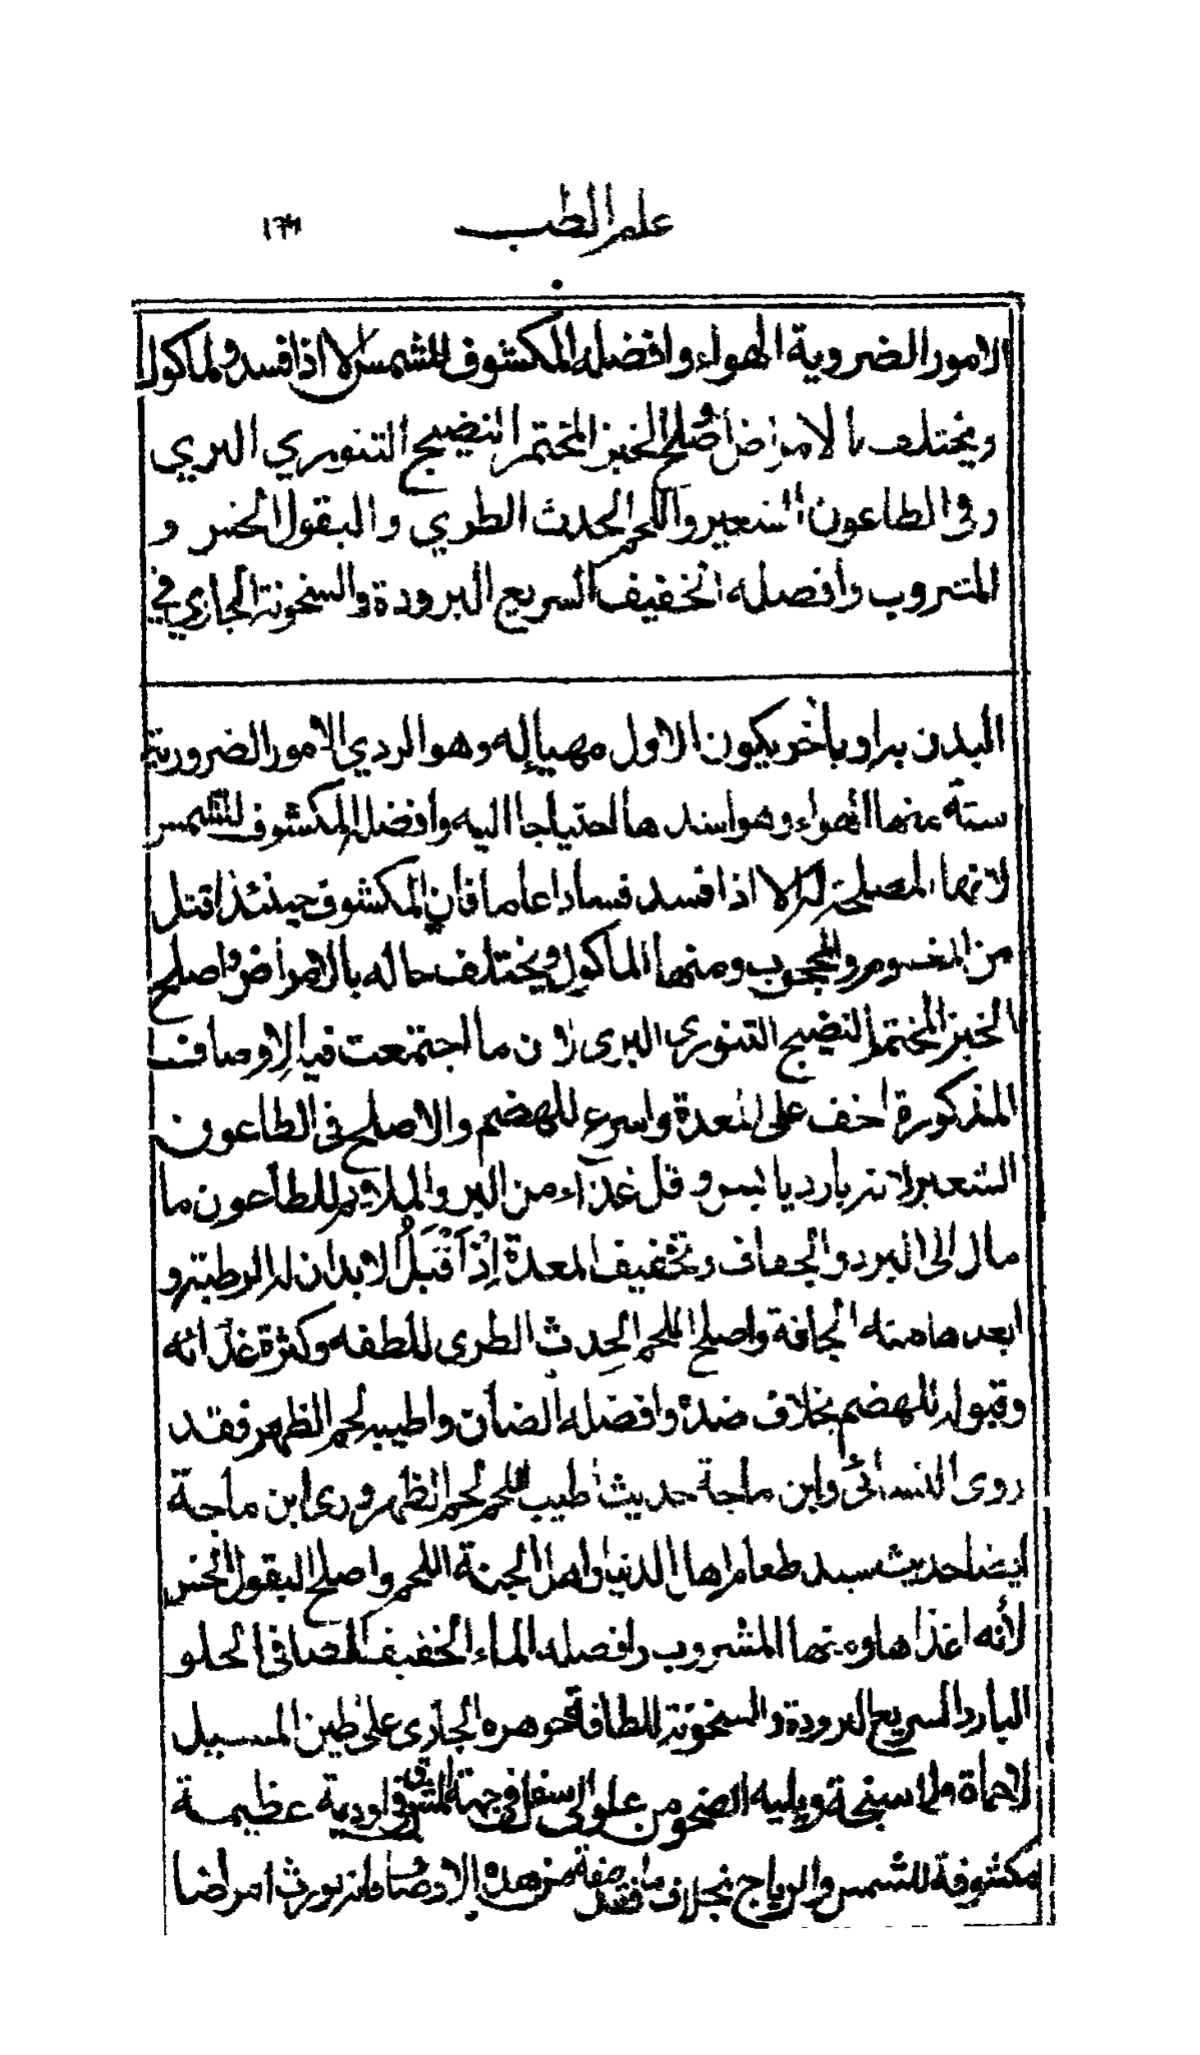 علم الطب
الامور الضروية الهواء وافضله المكشوف للشمس الا اذا فسد ولماكول
ويختلف بالامراض أصلح الخبز المختمر النضيج التنوري البري
وفي الطاعون الشعير واللحم الحدث الطري والبقول الخس و
المشروب وافضله الخفيف السريع البرودة والسخونة الجاري في
البدن براو باخر يكون الاول مهيا إله وهو الردي الامور الضرورية
ستة منها الهواء وهو اشدها احتياجا اليه وافضله المكشوف للشمس
لانها المصلحة له الا اذا فسد فسادا عاما فان المكشوف حينئذ اقتل
من المغموم والمحجوب ومنها الماكول ويختلف حاله بالامراض واصلح
الخبز المختمر النضيج التنورى البرى لان ما اجتمعت فيه الاوصاف
المذكورة اخف على المعدة واسرع للهضم والاصلح فى الطاعون
الشعير لانه بارد يابس وقل غذاء من البر والملايم للطاعون ما
مال الى البرد والجفاف وتخفيف المعدة إذ أقبل الابدان له الرطبة و
ابعدها منه الجافة واصلح اللحم الحدث الطرى للطفه وكثرة غذائه
وقبوله للهضم بخلاف ضده وافضله الضأن واطيبه لحم الظهر فقد
روى النسائى وابن ماجة حديث اطيب اللحم لحم الظهر وروى ابن ماجة
ايضا حديث سيد طعام اهل الدنيا واهل الجنة اللحم واصلح البقول الخس
لأنه اغذاها ومنها المشروب وافضله الماء الخفيف الصافى الحلو
البارد السريع البرودة والسخونة للطافة جوهره الجارى على طين المسيل
لا حماة ولا سبخة ويليه الصخر من علو الى اسفل لجهة المشرق فى اودية عظيمة
مكشوفة للشمس والرياح بخلاف ما فقد صفة من هذه الاوصاف فانه يورث امراضا